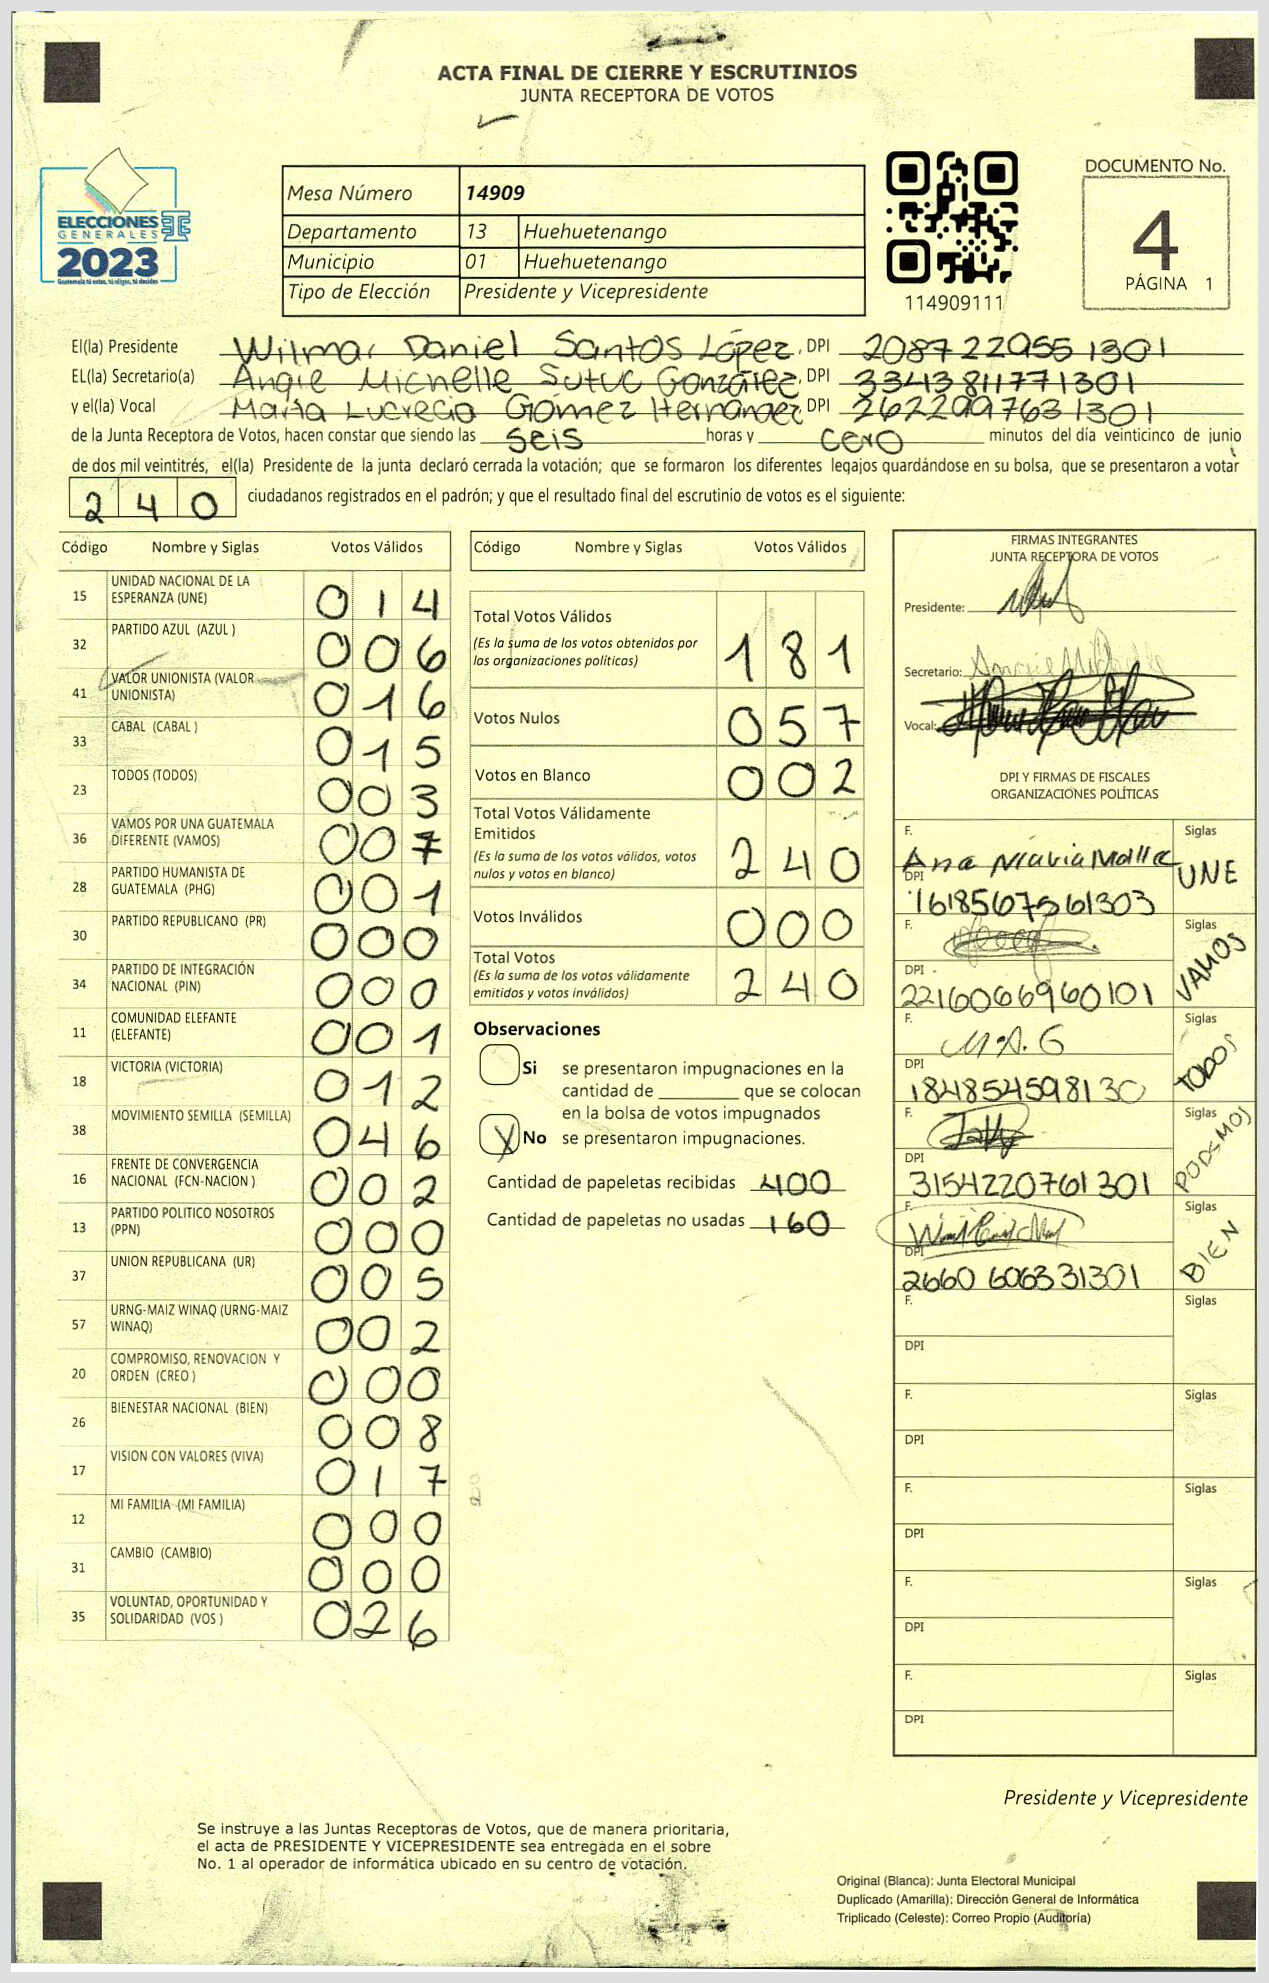 ACTA FINAL DE CIERRE Y ESCRUTINIOS
JUNTA RECEPTORA DE VOTOS
ELECCIONES
GENERALES
2023
Guatemala tú eres, tú eliges, tú decides
Mesa Número 14909
Departamento 13 Huehuetenango
Municipio 01 Huehuetenango
Tipo de Elección Presidente y Vicepresidente
114909111
DOCUMENTO No.
4
PÁGINA 1
El(la) Presidente Wilmar Daniel Santos López, DPI 2087229551301
EL(la) Secretario(a) Angie Michelle Sutuc González, DPI 3341381171301
y el(la) Vocal María Lucrecia Gómez Hernández DPI 2622997631301
de la Junta Receptora de Votos, hacen constar que siendo las seis horas y cero minutos del día veinticinco de junio
de dos mil veintitrés, el(la) Presidente de la junta declaró cerrada la votación; que se formaron los diferentes legajos guardándose en su bolsa, que se presentaron a votar
240 ciudadanos registrados en el padrón; y que el resultado final del escrutinio de votos es el siguiente:
Código Nombre y Siglas Votos Válidos
15 UNIDAD NACIONAL DE LA ESPERANZA (UNE) 014
32 PARTIDO AZUL (AZUL ) 006
41 VALOR UNIONISTA (VALOR UNIONISTA) 016
33 CABAL (CABAL ) 015
23 TODOS (TODOS) 003
36 VAMOS POR UNA GUATEMALA DIFERENTE (VAMOS) 007
28 PARTIDO HUMANISTA DE GUATEMALA (PHG) 001
30 PARTIDO REPUBLICANO (PR) 000
34 PARTIDO DE INTEGRACIÓN NACIONAL (PIN) 000
11 COMUNIDAD ELEFANTE (ELEFANTE) 001
18 VICTORIA (VICTORIA) 012
38 MOVIMIENTO SEMILLA (SEMILLA) 046
16 FRENTE DE CONVERGENCIA NACIONAL (FCN-NACION ) 002
13 PARTIDO POLITICO NOSOTROS (PPN) 000
37 UNION REPUBLICANA (UR) 005
57 URNG-MAIZ WINAQ (URNG-MAIZ WINAQ) 002
20 COMPROMISO, RENOVACION Y ORDEN (CREO ) 000
26 BIENESTAR NACIONAL (BIEN) 008
17 VISION CON VALORES (VIVA) 017
12 MI FAMILIA (MI FAMILIA) 000
31 CAMBIO (CAMBIO) 000
35 VOLUNTAD, OPORTUNIDAD Y SOLIDARIDAD (VOS ) 026
Código Nombre y Siglas Votos Válidos
Total Votos Válidos 181
(Es la suma de los votos obtenidos por
las organizaciones políticas)
Votos Nulos 057
Votos en Blanco 002
Total Votos Válidamente
Emitidos 240
(Es la suma de los votos válidos, votos
nulos y votos en blanco)
Votos Inválidos 000
Total Votos 240
(Es la suma de los votos válidamente
emitidos y votos inválidos)
Observaciones
Si se presentaron impugnaciones en la
cantidad de ________ que se colocan
en la bolsa de votos impugnados
X No se presentaron impugnaciones.
Cantidad de papeletas recibidas 400
Cantidad de papeletas no usadas 160
FIRMAS INTEGRANTES
JUNTA RECEPTORA DE VOTOS
Presidente:
Secretario:
Vocal:
DPI Y FIRMAS DE FISCALES
ORGANIZACIONES POLÍTICAS
F. Ana Maria Siglas UNE
DPI 1618567561303
F. Siglas VAMOS
DPI 2216066960101
F. M.A.G Siglas TODOS
DPI 184854598130
F. Siglas PODEMOS
DPI 3154220761301
F. Siglas BIEN
DPI 2660606331301
F. Siglas
DPI
F. Siglas
DPI
F. Siglas
DPI
F. Siglas
DPI
F. Siglas
DPI
Presidente y Vicepresidente
Se instruye a las Juntas Receptoras de Votos, que de manera prioritaria,
el acta de PRESIDENTE Y VICEPRESIDENTE sea entregada en el sobre
No. 1 al operador de informática ubicado en su centro de votación.
Original (Blanca): Junta Electoral Municipal
Duplicado (Amarilla): Dirección General de Informática
Triplicado (Celeste): Correo Propio (Auditoría)